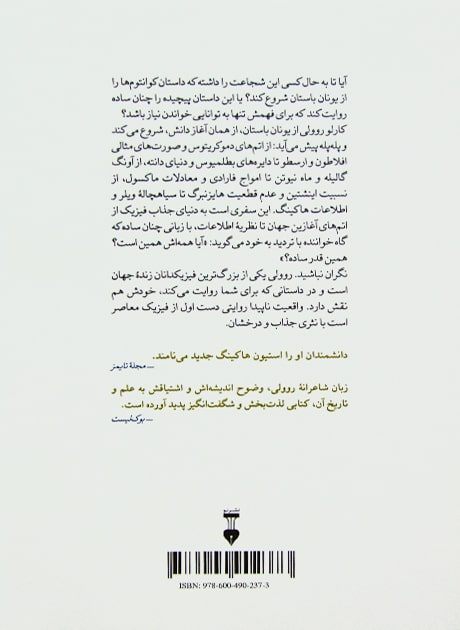 آیا تا به حال کسی این شجاعت را داشته که داستان کوانتوم‌ها را
از یونان باستان شروع کند؟ یا این داستان پیچیده را چنان ساده
روایت کند که برای فهمش تنها به توانایی خواندن نیاز باشد؟
کارلو روولی از یونان باستان، از همان آغاز دانش، شروع می‌کند
و پله‌پله پیش می‌آید: از اتم‌های دموکریتوس و صورت‌های مثالی
افلاطون و ارسطو تا دایره‌های بطلمیوس و دنیای دانته، از آونگ
گالیله و ماه نیوتن تا امواج فارادی و معادلات ماکسول، از
نسبیت اینشتین و عدم قطعیت هایزنبرگ تا سیاهچالهٔ ویلر و
اطلاعات هاکینگ. این سفری است به دنیای جذاب فیزیک از
اتم‌های آغازین جهان تا نظریهٔ اطلاعات، با زبانی چنان ساده که
گاه خواننده با تردید به خود می‌گوید: «آیا همه‌اش همین است؟
همین قدر ساده؟»
نگران نباشید. روولی یکی از بزرگ‌ترین فیزیکدانان زندهٔ جهان
است و در داستانی که برای شما روایت می‌کند، خودش هم
نقش دارد. واقعیت ناپیدا روایتی دست اول از فیزیک معاصر
است با نثری جذاب و درخشان.
دانشمندان او را استیون هاکینگ جدید می‌نامند.
ــ مجلهٔ تایمز
زبان شاعرانهٔ روولی، وضوح اندیشه‌اش و اشتیاقش به علم و
تاریخ آن، کتابی لذت‌بخش و شگفت‌انگیز پدید آورده است.
ــ بوک‌لیست
نشر نو
ISBN: 978-600-490-237-3